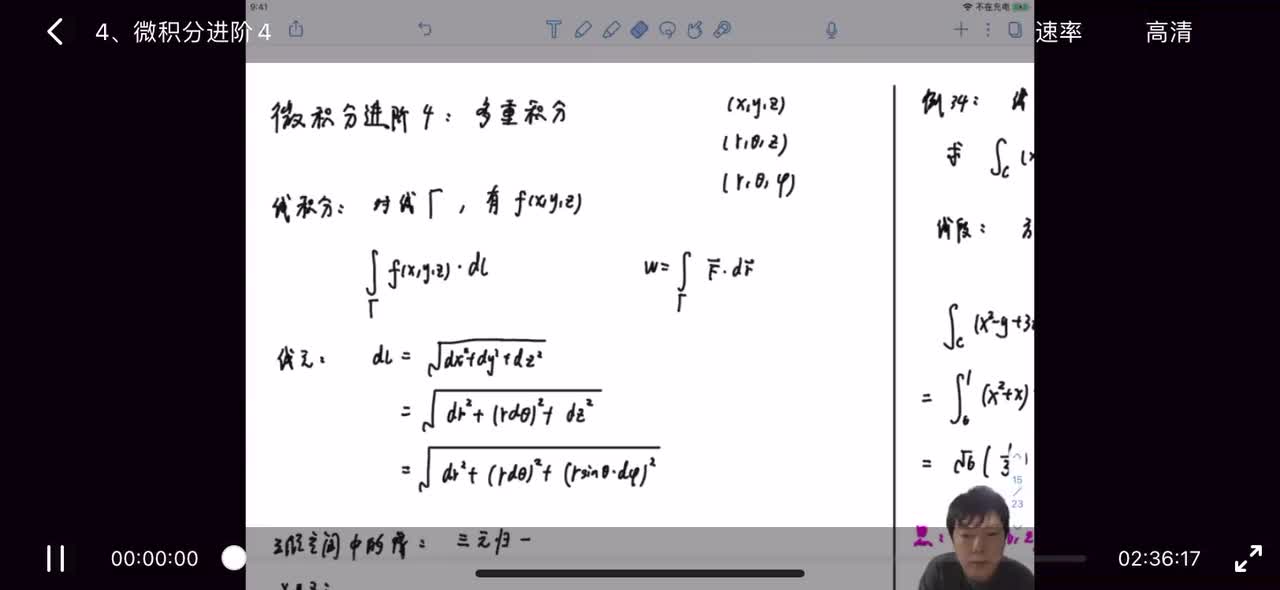 9:41
不在充电
4、微积分进阶4
速率
高清
微积分进阶4：多重积分
(x,y,z)
(r,θ,z)
(r,θ,φ)
线积分：对线Γ，有 f(x,y,z)
∫_Γ f(x,y,z)·dl
W=∫_Γ F⃗·dr⃗
线元：dl = √(dx²+dy²+dz²)
= √(dr²+(rdθ)²+dz²)
= √(dr²+(rdθ)²+(rsinθ·dφ)²)
三维空间中的线：三元归一
例34：
求 ∫_C (x
线段：方
∫_C (x²-y+3z
= ∫_0^1 (x²+x)
= √6 (1/3
15
/
23
00:00:00
02:36:17